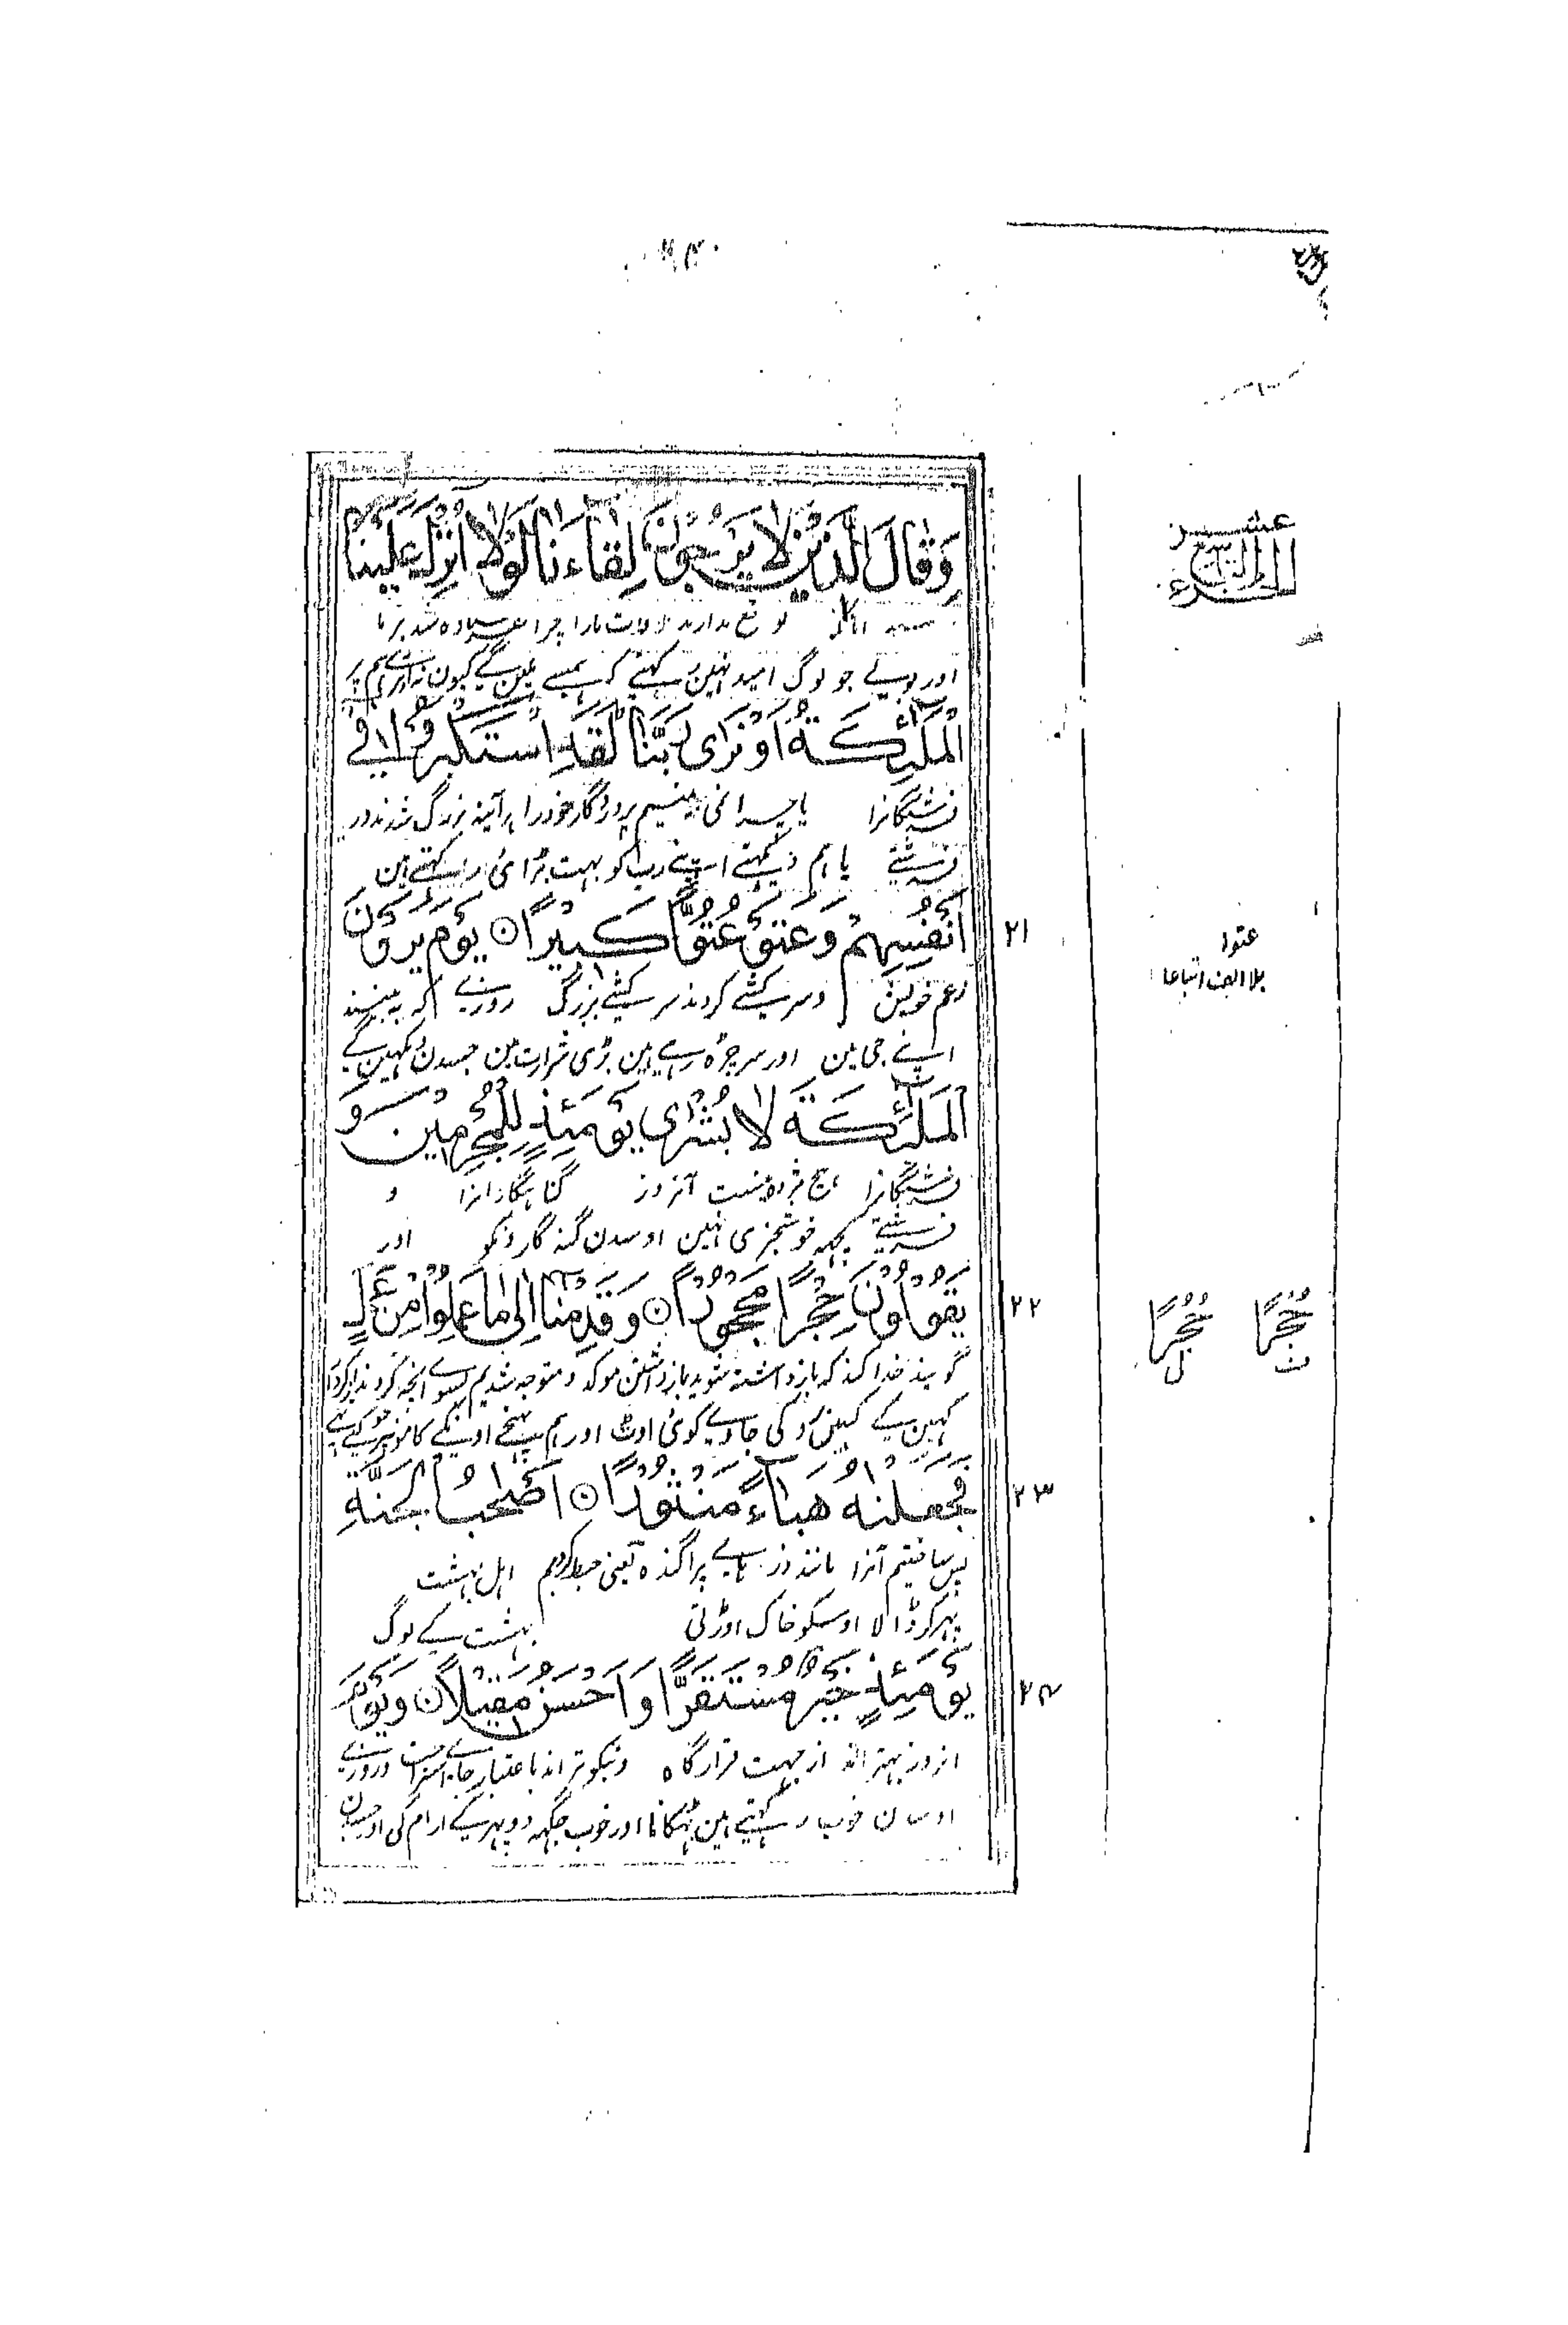 وَقَالَ الَّذِيْنَ لَا يَرْجُوْنَ لِقَاءَنَا لَوْلَا اُنْزِلَ عَلَيْنَا
توقع ندارند ملاقات مارا چرا فرستاده نشد بر ما
اور بولے جو لوگ امید نہین رکہتے کہ ہمسے ملین گے کیون نہ اترے ہم پر
الْمَلٰٓئِكَةُ اَوْ نَرٰى رَبَّنَا لَقَدِ اسْتَكْبَرُوْا فِيْ
فرشتگانرا یا چرا نمی بینیم پروردگار خود را ہر آینہ بزرگ شدند در
فرشتے یا ہم دیکہتے اپنے رب کو بہت بڑائی رکہتے ہین
اَنْفُسِهِمْ وَعَتَوْ عُتُوًّا كَبِيْرًا ۝ يَوْمَ يَرَوْنَ
۲۱
زعم خویش و سرکشے کردند سرکشے بزرگ روزے کہ بہ بینند
اپنے جی مین اور سر چڑہ رہے ہین بڑی شرارت مین جسدن دیکہین گے
الْمَلٰٓئِكَةَ لَا بُشْرٰى يَوْمَئِذٍ لِّلْمُجْرِمِيْنَ وَ
فرشتگانرا ہیچ مژدہ نیست آنروز گناہگارانرا و
فرشتے کچہہ خوشخبری نہین اوسدن گنہ گارونکو اور
يَقُوْلُوْنَ حِجْرًا مَّحْجُوْرًا ۝ وَقَدِمْنَا اِلٰى مَا عَمِلُوْا مِنْ عَمَلٍ
۲۲
گویند خدا کند کہ باز داشتہ شوید باز داشتن موکد و متوجہ شدیم بسوے انچہ کردند از کردار
کہین گے کہین روکی جاوے کوئی اوٹ اور ہم پہنچے اونکے کامونپر جو کیے تہے
فَجَعَلْنٰهُ هَبَآءً مَّنْثُوْرًا ۝ اَصْحٰبُ الْجَنَّةِ
۲۳
پس ساختیم آنرا مانند ذرہاے پراگندہ یعنی اہل بہشت
پہر کر ڈالا اوسکو خاک اوڑتی بہشت کے لوگ
يَوْمَئِذٍ خَيْرٌ مُّسْتَقَرًّا وَّاَحْسَنُ مَقِيْلًا ۝ وَيَوْمَ
۲۴
انروز بہتر اند از جہت قرارگاہ و نیکوتر اند باعتبار جاے استراحت و روزے
اوسدن خوب رکہتے ہین ٹہکانا اور خوب جگہہ دوپہر کے ارام کی اور جسدن
عتوا
بلا الف اتباعا
حُجْرًا حُجُرًا